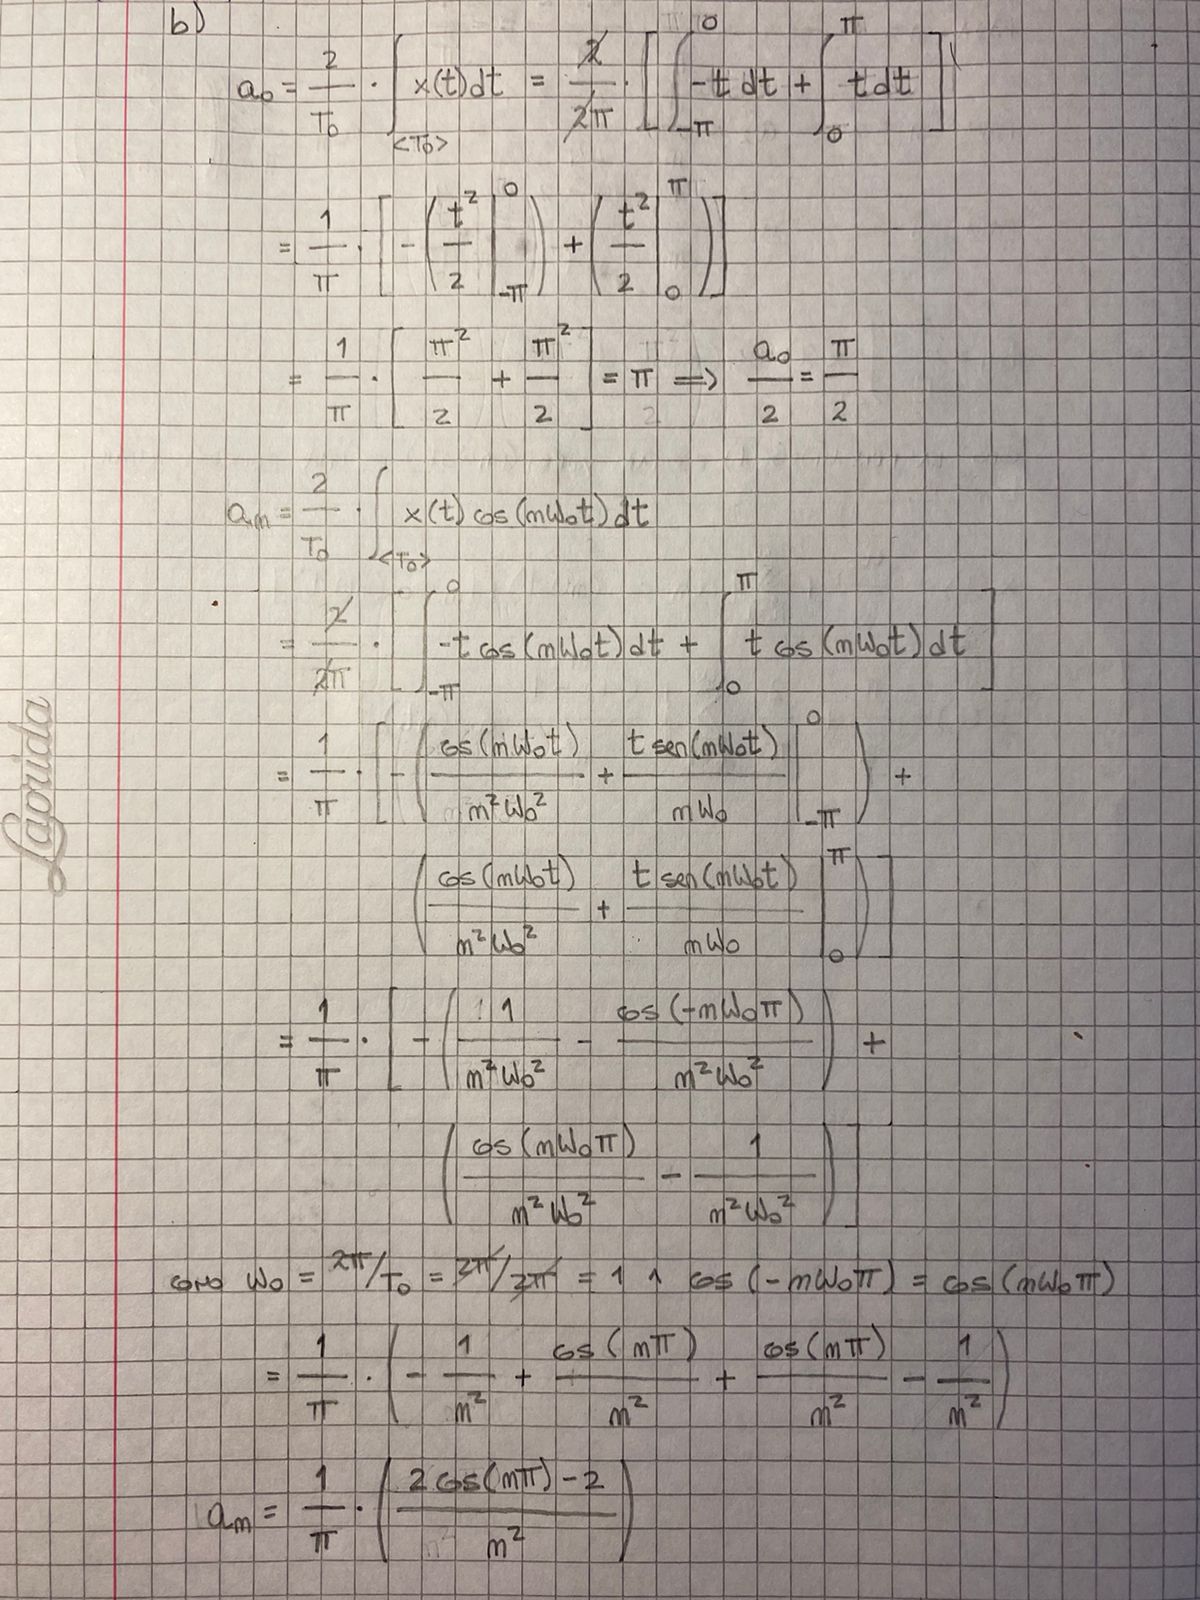 b)
a₀ = 2/T₀ · ∫_<T₀> x(t)dt = 2/2π · [ ∫_-π^0 -t dt + ∫_0^π t dt ]
= 1/π · [ -( t²/2 |_-π^0 ) + ( t²/2 |_0^π ) ]
= 1/π · [ π²/2 + π²/2 ] = π ⟹ a₀/2 = π/2
aₘ = 2/T₀ · ∫_<T₀> x(t) cos(mω₀t) dt
= 2/2π · [ ∫_-π^0 -t cos(mω₀t) dt + ∫_0^π t cos(mω₀t) dt ]
= 1/π · [ -( cos(mω₀t)/m²ω₀² + t sen(mω₀t)/mω₀ |_-π^0 ) +
( cos(mω₀t)/m²ω₀² + t sen(mω₀t)/mω₀ |_0^π ) ]
= 1/π · [ -( 1/m²ω₀² - cos(-mω₀π)/m²ω₀² ) +
( cos(mω₀π)/m²ω₀² - 1/m²ω₀² ) ]
como ω₀ = 2π/T₀ = 2π/2π = 1 ∧ cos(-mω₀π) = cos(mω₀π)
= 1/π · ( - 1/m² + cos(mπ)/m² + cos(mπ)/m² - 1/m² )
aₘ = 1/π · ( 2cos(mπ) - 2 / m² )
Laprida